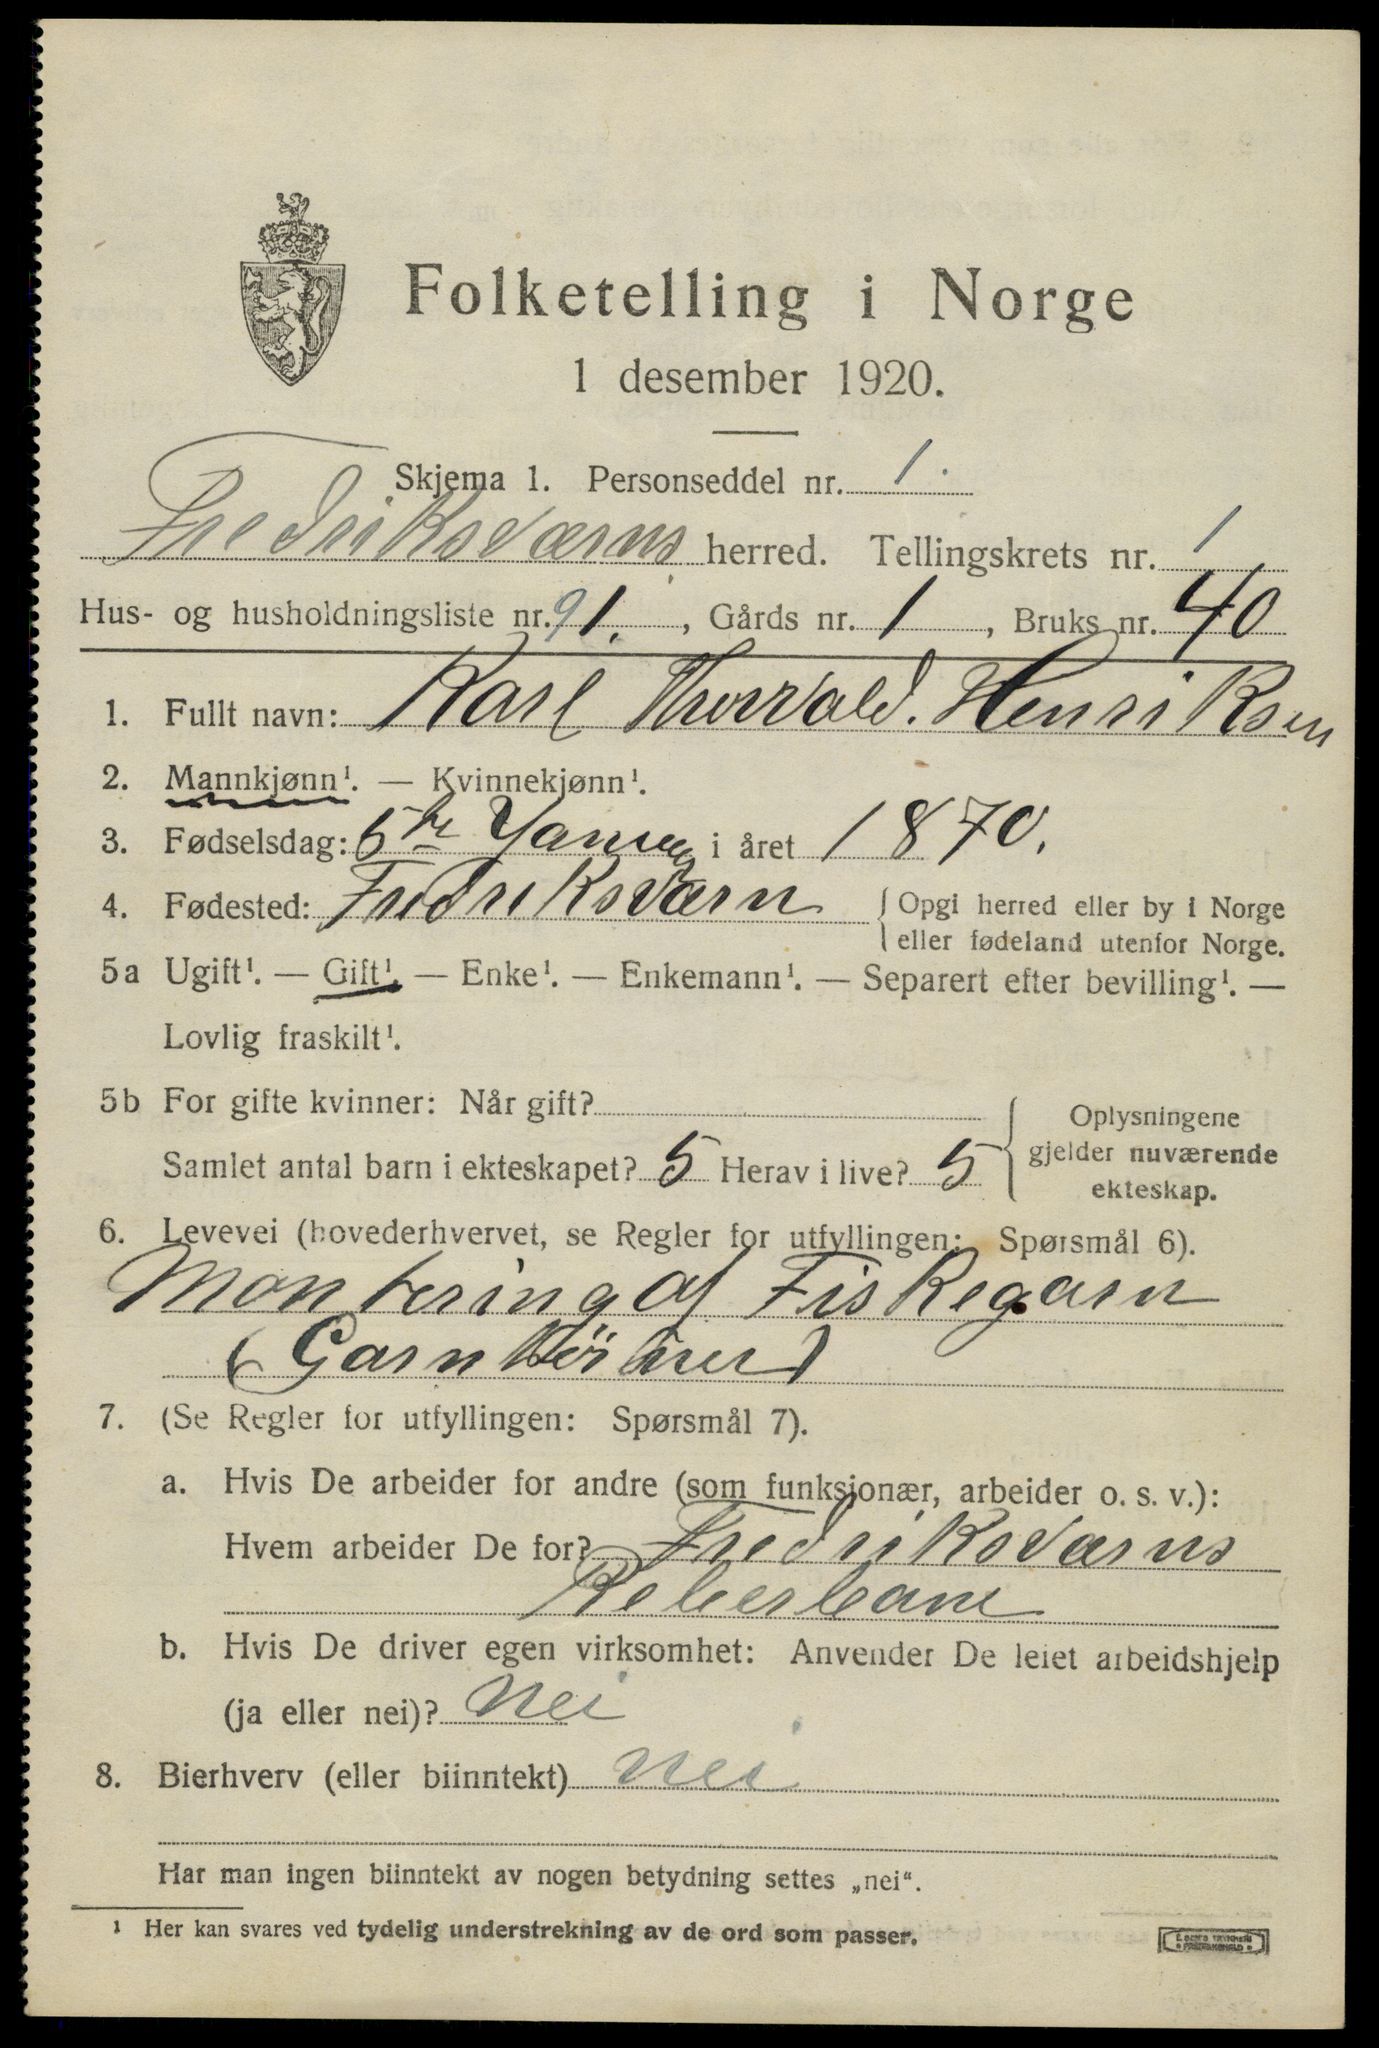 Folketelling i Norge
1 desember 1920.
Skjema 1. Personseddel nr. 1.
Fredriksværns herred. Tellingskrets nr. 1
Hus- og husholdningsliste nr. 91. , Gårds nr. 1 , Bruks nr. 40
1. Fullt navn: Karl Thorvald. Henriksen
2. Mannkjønn¹. — Kvinnekjønn¹.
3. Fødselsdag: 5te Januar i året 1870.
4. Fødested: Fredriksværn { Opgi herred eller by i Norge
eller fødeland utenfor Norge.
5a Ugift¹. — Gift¹. — Enke¹. — Enkemann¹. — Separert efter bevilling¹. —
Lovlig fraskilt¹.
5b For gifte kvinner: Når gift?
Samlet antal barn i ekteskapet? 5 Herav i live? 5
Oplysningene
gjelder nuværende
ekteskap.
6. Levevei (hovederhvervet, se Regler for utfyllingen: Spørsmål 6).
Montering af Fiskegarn
(Garn
7. (Se Regler for utfyllingen: Spørsmål 7).
a. Hvis De arbeider for andre (som funksjonær, arbeider o. s. v.):
Hvem arbeider De for? Fredriksværns
Reberbane
b. Hvis De driver egen virksomhet: Anvender De leiet arbeidshjelp
(ja eller nei)? Nei
8. Bierhverv (eller biinntekt) nei
Har man ingen biinntekt av nogen betydning settes „nei“.
¹ Her kan svares ved tydelig understrekning av de ord som passer.